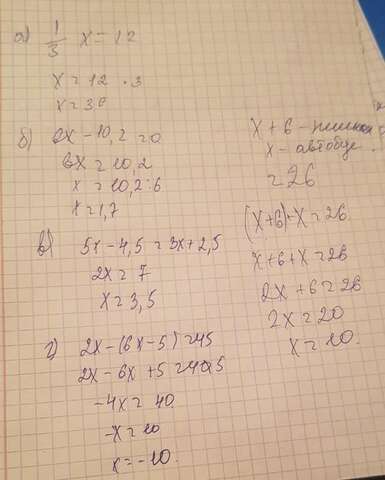 а) 1/3 x = 12
x = 12 · 3
x = 36
б) 6x - 10,2 = 0
6x = 10,2
x = 10,2 : 6
x = 1,7
в) 5x - 4,5 = 3x + 2,5
2x = 7
x = 3,5
г) 2x - (6x - 5) = 45
2x - 6x + 5 = 45
-4x = 40
-x = 10
x = -10.
x + 6 - пешком
x - автобус
= 26
(x + 6) + x = 26
x + 6 + x = 26
2x + 6 = 26
2x = 20
x = 10.